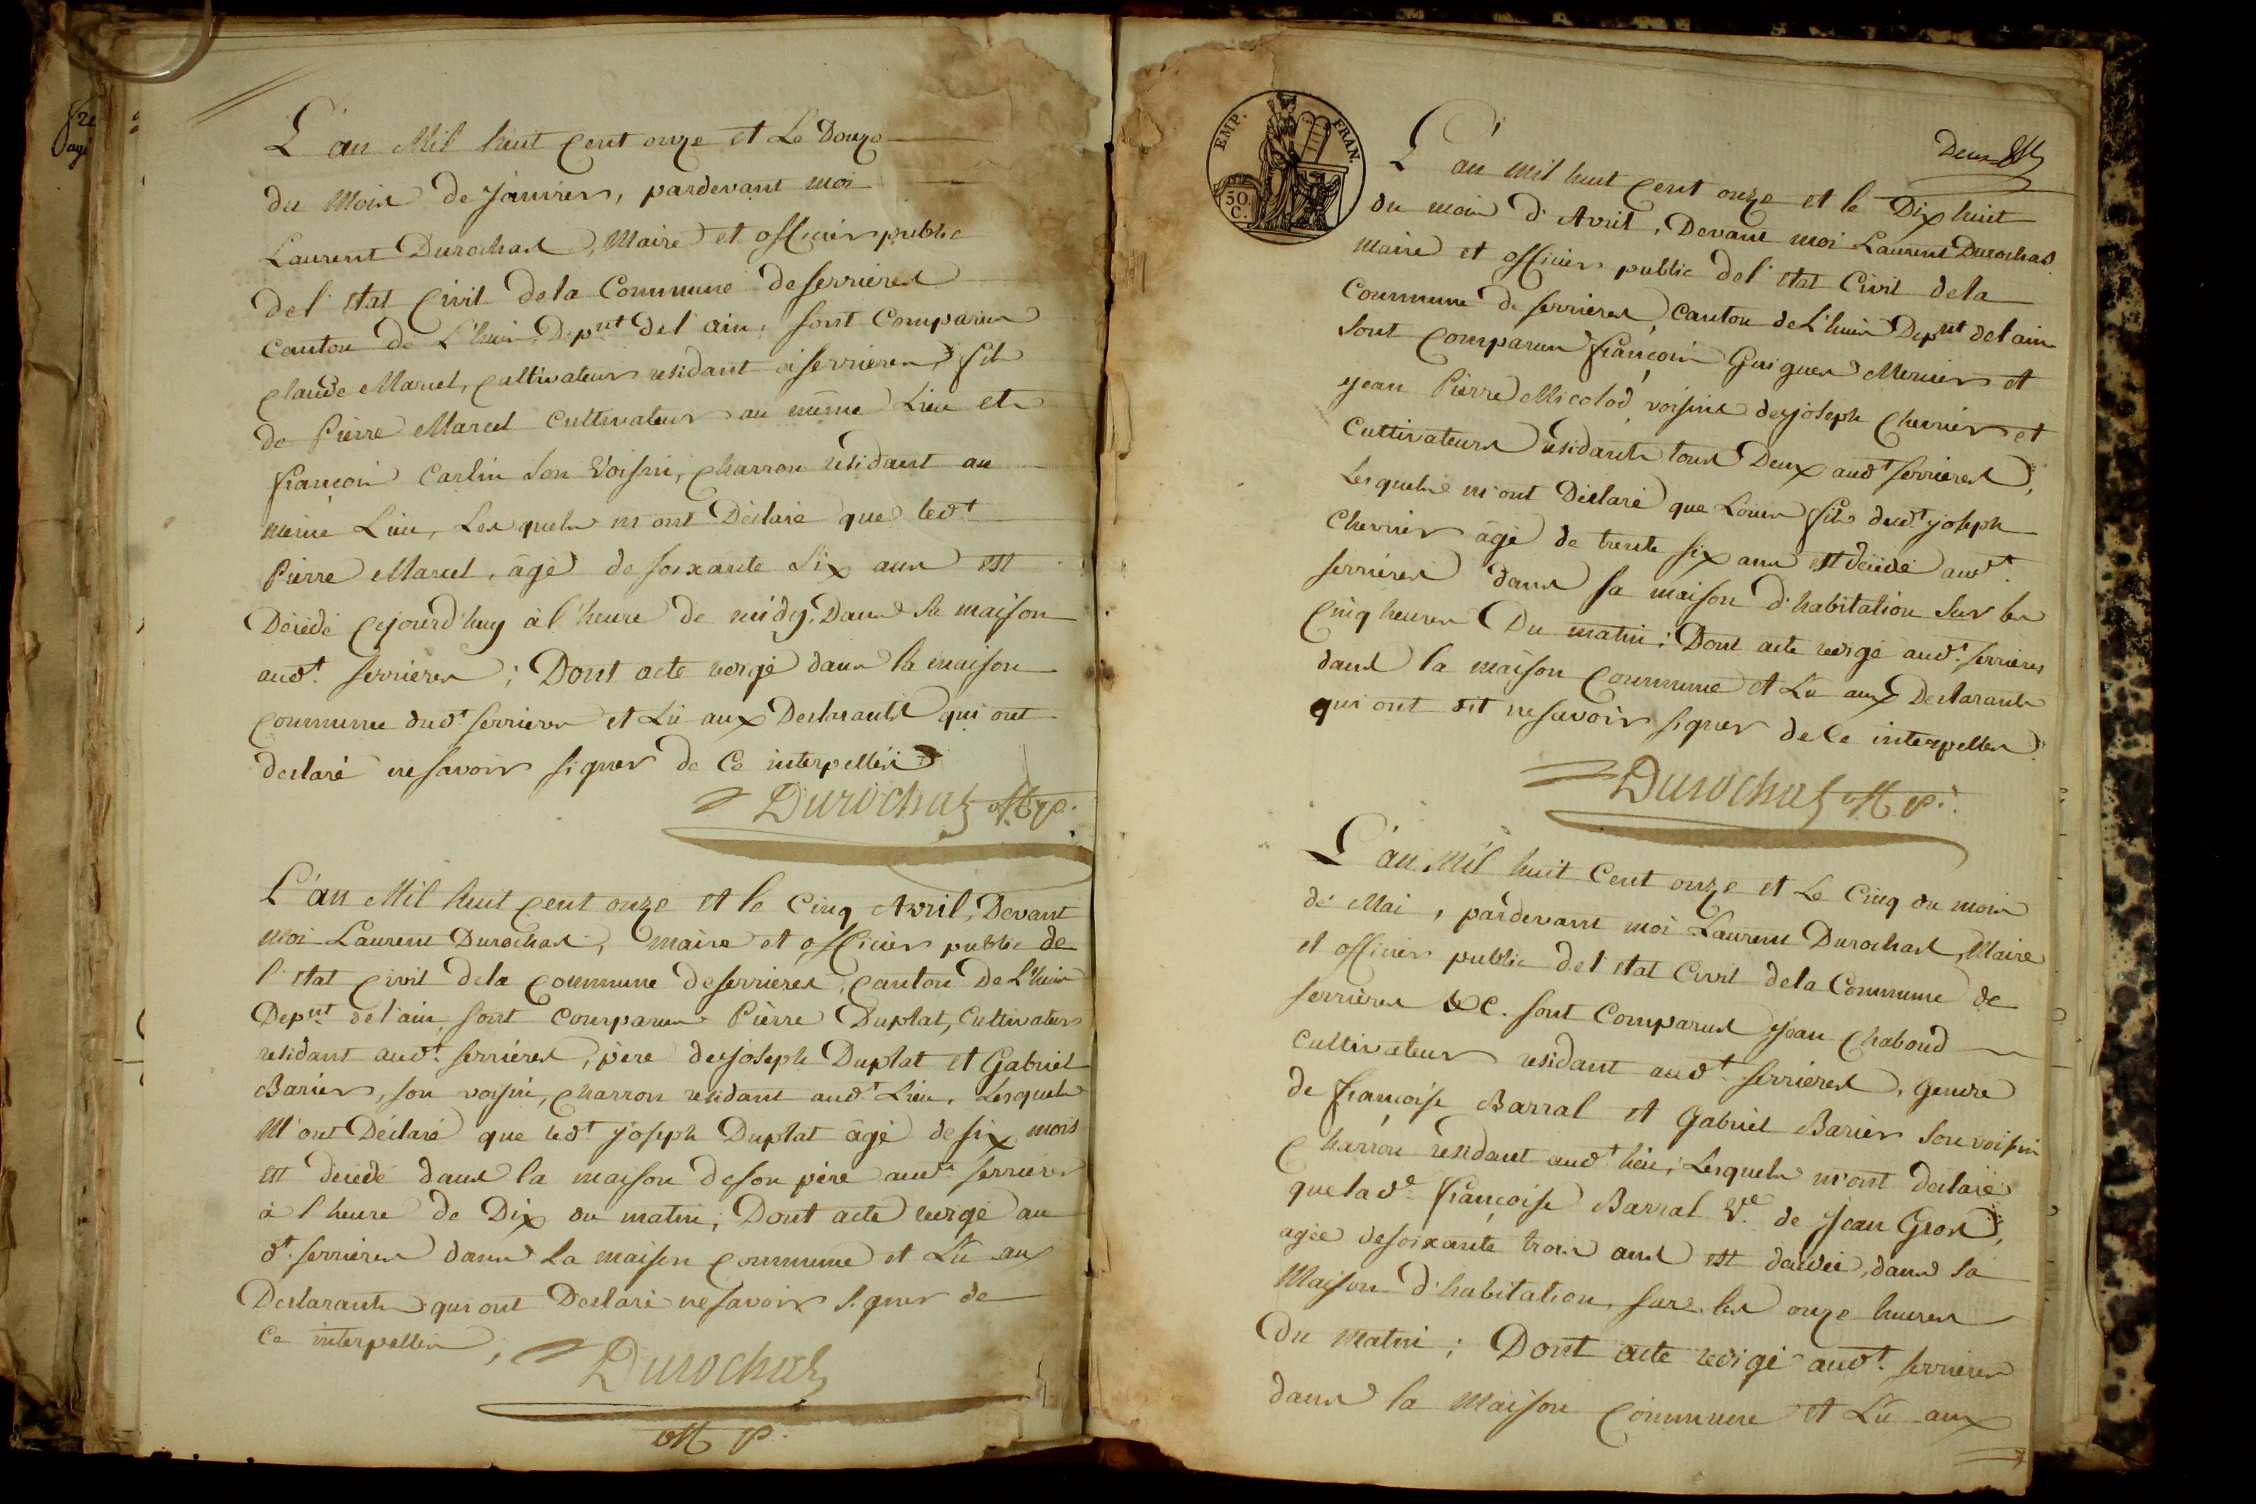 L'an Mil huit cent onze et Le Douze
du Mois de Janvier, pardevant moi
Laurent Durochas, Maire et officier public
de l'etat Civil de la Commune de serrieres
Canton de L'huis, Depnt de l'ain, sont Comparus
Claude Marcel, cultivateur residant à serrieres, fils
de Pierre Marcel cultivateur au même Lieu et
françois Carlin son Voisin, charron residant au
même Lieu, Lesquels m'ont Déclaré que led.t
Pierre Marcel, âgé de soixante six ans est
Décédé cejourd'huy à l'heure de midy, Dans sa maison
aud.t serrieres ; Dont acte redigé dans la maison
commune dud.t serrieres et Lû aux Declarants qui ont
declaré ne savoir signer de Ce interpellés
Durochas off. p.
L'an Mil huit cent onze et le Cinq Avril, Devant
moi Laurent Durochas, maire et officier public de
l'etat civil de la commune de serrieres, canton De L'huis
Depnt de l'ain, sont comparus Pierre Duplat, Cultivateur
residant aud.t serrieres, père de joseph Duplat et Gabriel
Barier, son voisin, charron residant aud.t Lieu, Lesquels
M'ont Déclaré que led.t joseph Duplat âgé de six mois
est decedé dans la maison de son père aud.t serrieres
à l'heure de Dix du matin ; Dont acte redigé au
d.t serrieres dans La maison commune et Lû aux
Declarants qui ont Declaré ne savoir signer de
Ce interpellés,
Durochas
off p.
EMP. FRAN.
50 C.
Deux
L'an mil huit cent onze et le Dix huit
du mois d'Avril, Devant moi Laurent Durochas
Maire et officier public de l'etat Civil de la
Commune de serrieres, Canton de L'huis Depnt de l'ain
sont comparus françois Guigues Meunier et
jean Pierre Micolod, voisins de joseph Cherrier et
Cultivateurs residants tous Deux aud.t serrieres,
Lesquels m'ont Déclaré que Louis fils dud.t joseph
Cherrier âgé de trente six ans est décédé aud.t
serrieres dans sa maison d'habitation sur les
Cinq heures Du matin ; Dont acte redigé aud.t serrieres
dans la maison commune et Lû aux Declarants
qui ont dit ne savoir signer de Ce interpellés
Durochas off. p.
L'an Mil huit Cent onze et Le Cinq du mois
de Mai, pardevant moi Laurent Durochas, Maire
et officier public de l'etat Civil de la Commune de
serrieres &c. sont Comparus Jean Chaboud
Cultivateur residant aud.t serrieres, gendre
de françoise Barral et Gabriel Barier son voisin
Charron residant aud.t lieu ; Lesquels m'ont declaré
que lad.e françoise Barral V.e de Jean Gros,
agée de soixante trois ans est décédée, dans sa
Maison d'habitation, sur les onze heures
Du matin ; Dont acte redigé aud.t serrieres
dans la Maison Commune et Lû aux